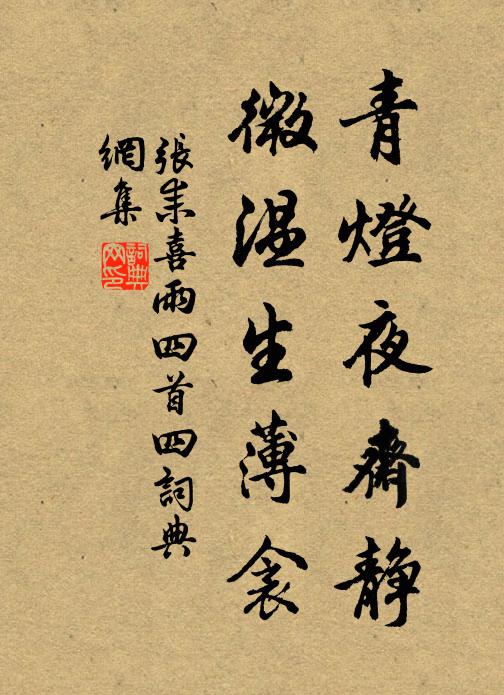 青燈夜齋静
微温生薄衾
張耒喜雨四首四詞典
網集
詞典
网印